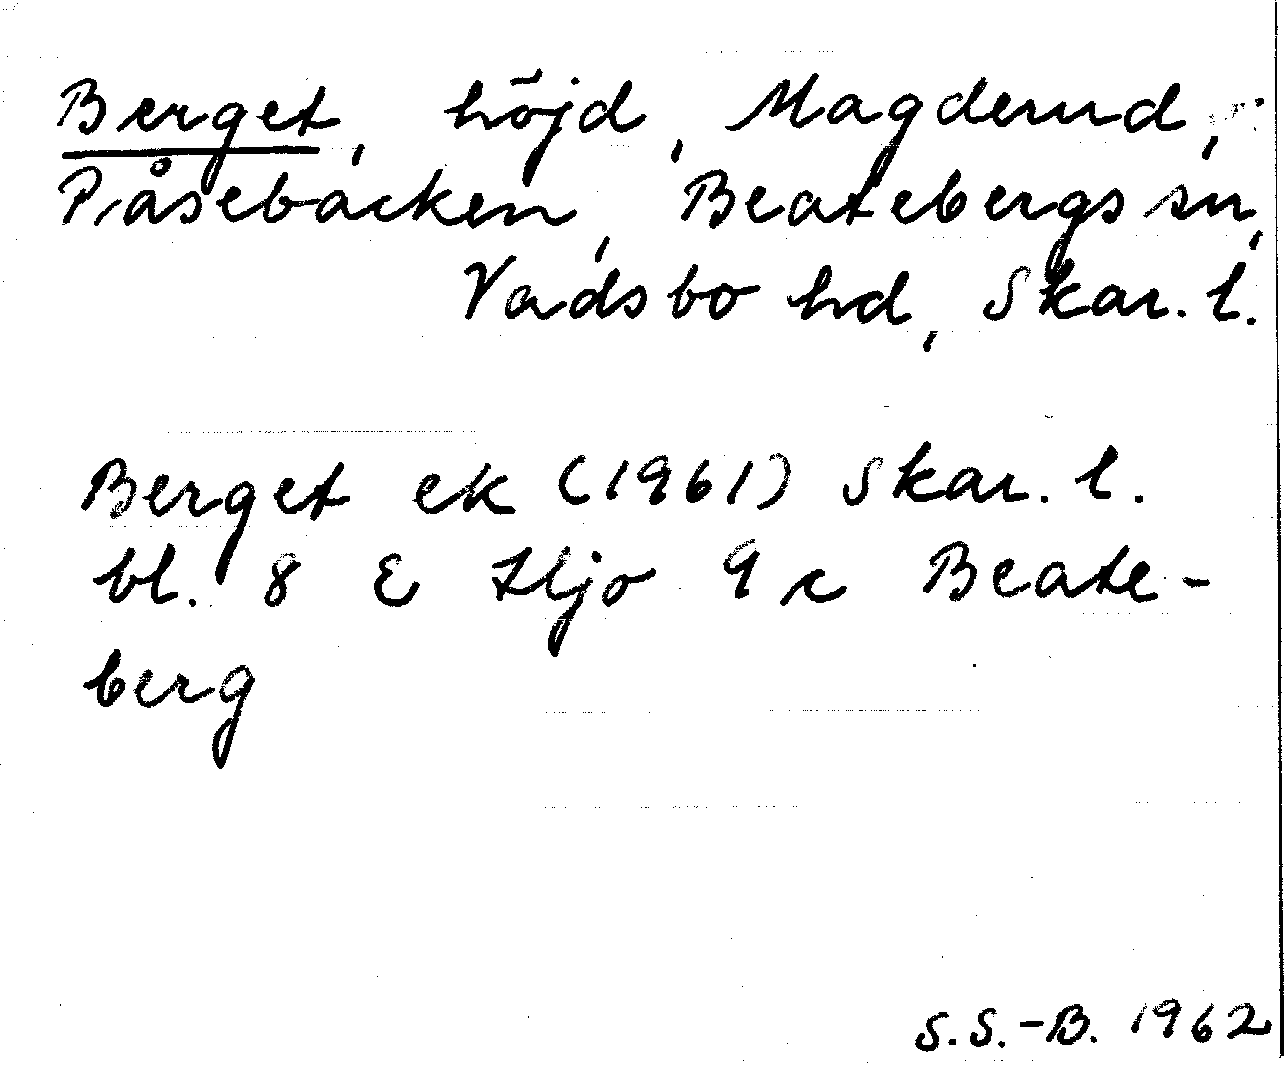 Berget, höjd, Magderud,
Påsebacken, Beatebergs sn,
Vadsbo hd, Skar. l.
Berget ek (1961) Skar. l.
bl. 8 E Hjo 9 c Beate-
berg
S.S.-B. 1962